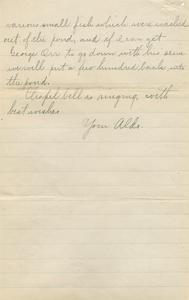 various small fish which were washed
out of the pond, and if I can get
George Orr to go down with his sein
we will put a few hundred back into
the pond.
Chapel bell is ringing, with
best wishes
Your Aldo.